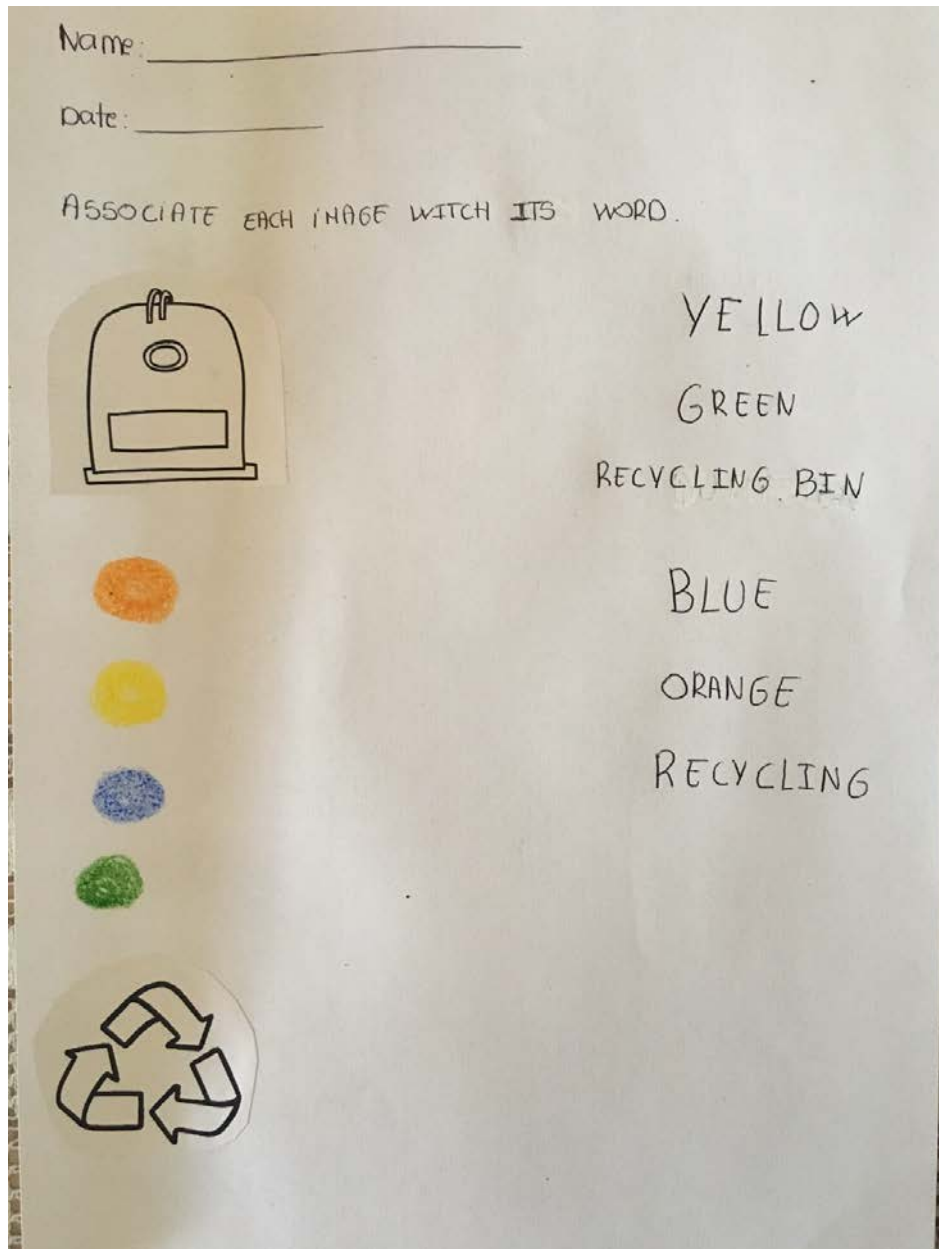 Name: ____________________
Date: __________
ASSOCIATE EACH IMAGE WITCH ITS WORD.
YELLOW
GREEN
RECYCLING BIN
BLUE
ORANGE
RECYCLING